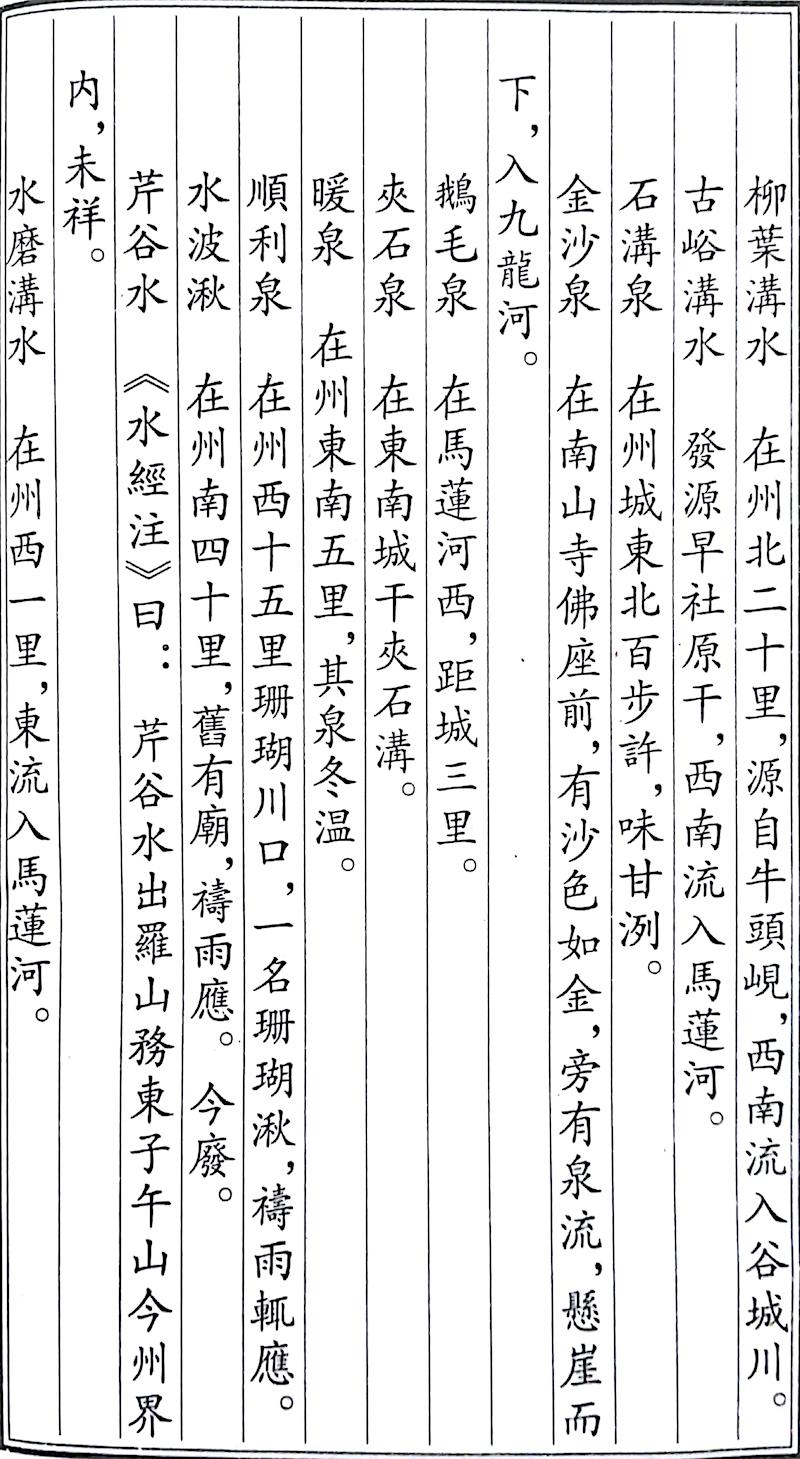 柳葉溝水　在州北二十里，源自牛頭峴，西南流入谷城川。
古峪溝水　發源早社原干，西南流入馬蓮河。
石溝泉　在州城東北百步許，味甘洌。
金沙泉　在南山寺佛座前，有沙色如金，旁有泉流，懸崖而
下，入九龍河。
鵝毛泉　在馬蓮河西，距城三里。
夾石泉　在東南城干夾石溝。
暖泉　在州東南五里，其泉冬温。
順利泉　在州西十五里珊瑚川口，一名珊瑚湫，禱雨輒應。
水波湫　在州南四十里，舊有廟，禱雨應。今廢。
芹谷水　《水經注》曰：芹谷水出羅山務東子午山今州界
内，未祥。
水磨溝水　在州西一里，東流入馬蓮河。